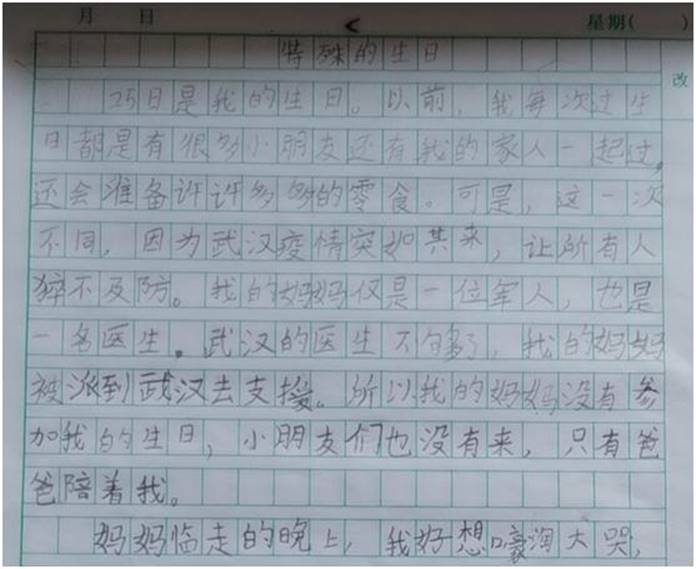 月 日 星期( )
特殊的生日
改
25日是我的生日。以前，我每次过生
日都是有很多小朋友还有我的家人一起过，
还会准备许许多多的零食。可是，这一次
不同，因为武汉疫情突如其来，让所有人
猝不及防。我的妈妈仅是一位军人，也是
一名医生。武汉的医生不够了，我的妈妈
被派到武汉去支援。所以我的妈妈没有参
加我的生日，小朋友们也没有来，只有爸
爸陪着我。
妈妈临走的晚上，我好想嚎淘大哭，